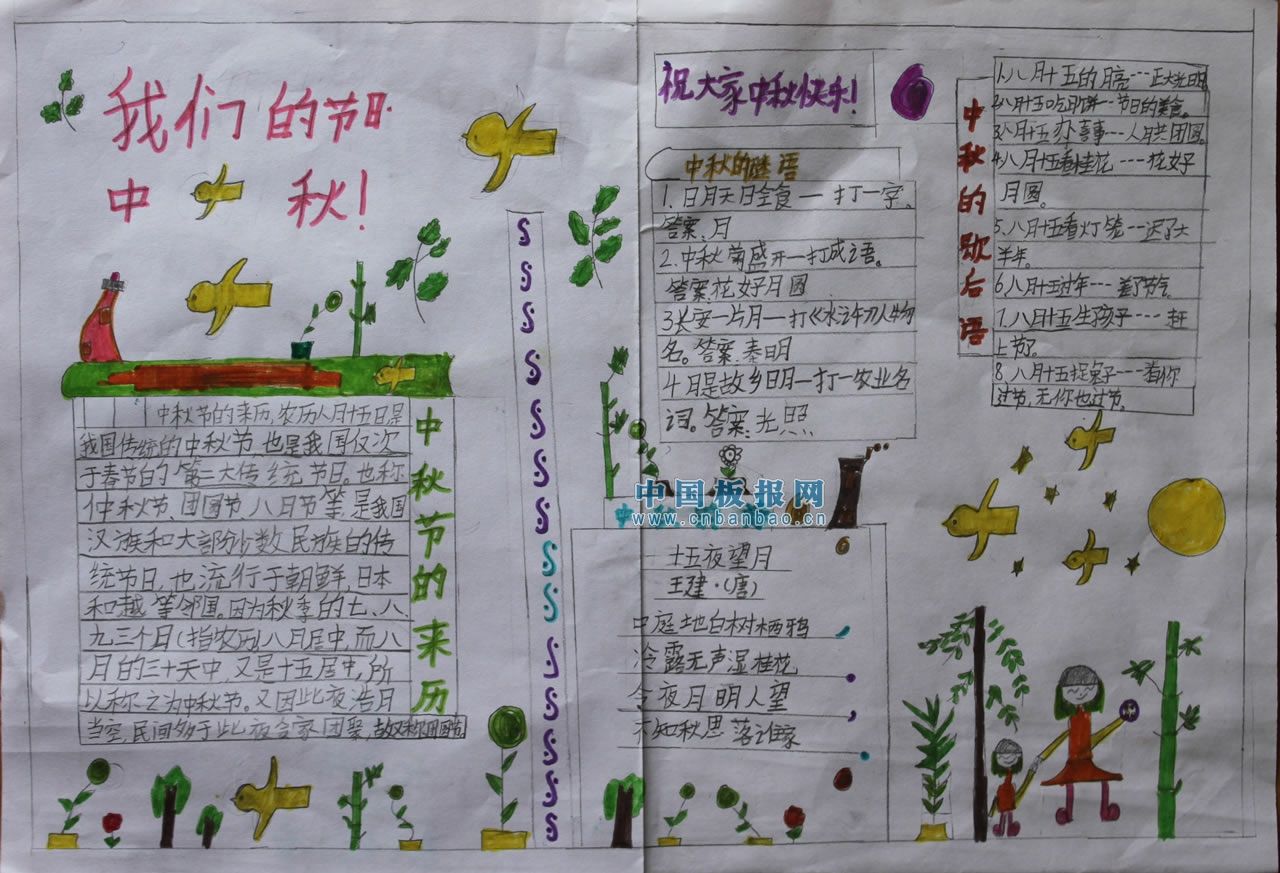 我们的节日·
中秋!
中秋节的来历
中秋节的来历,农历八月十五日是
我国传统的中秋节,也是我国仅次
于春节的第二大传统节日。也称
仲秋节、团圆节、八月节等,是我国
汉族和大部分少数民族的传
统节日,也流行于朝鲜、日本
和越等邻国。因为秋季的七、八
九三个月(指农历),八月居中,而八
月的三十天中,又是十五居中,所
以称之为中秋节。又因此夜浩月
当空,民间多于此夜合家团聚,故又称团圆节
祝大家中秋快乐!
中秋的谜语
1.日月天日全食一打一字、
答案、月
2.中秋菊盛开一打成语。
答案花好月圆
3长安一片月一打《水浒》人物
名。答案、秦明
4月是故乡明一打一农业名
词。答案、光照
中国板报网
www.cnbanbao.cn
十五夜望月
王建·(唐)
中庭地白树栖鸦
冷露无声湿桂花
今夜月明人望
不知秋思落谁家
中秋的歇后语
1.八月十五的月亮---正大光明
2八月十五吃月饼--节日的美食。
3八月十五办喜事---人月共团圆
4.八月十五看桂花----花好
月圆。
5.八月十五看灯笼---迟了大
半年。
6.八月十五过年---差了节气
7.八月十五生孩子----赶
上节了。
8八月十五捉兔子----有你
过节,无你也过节。